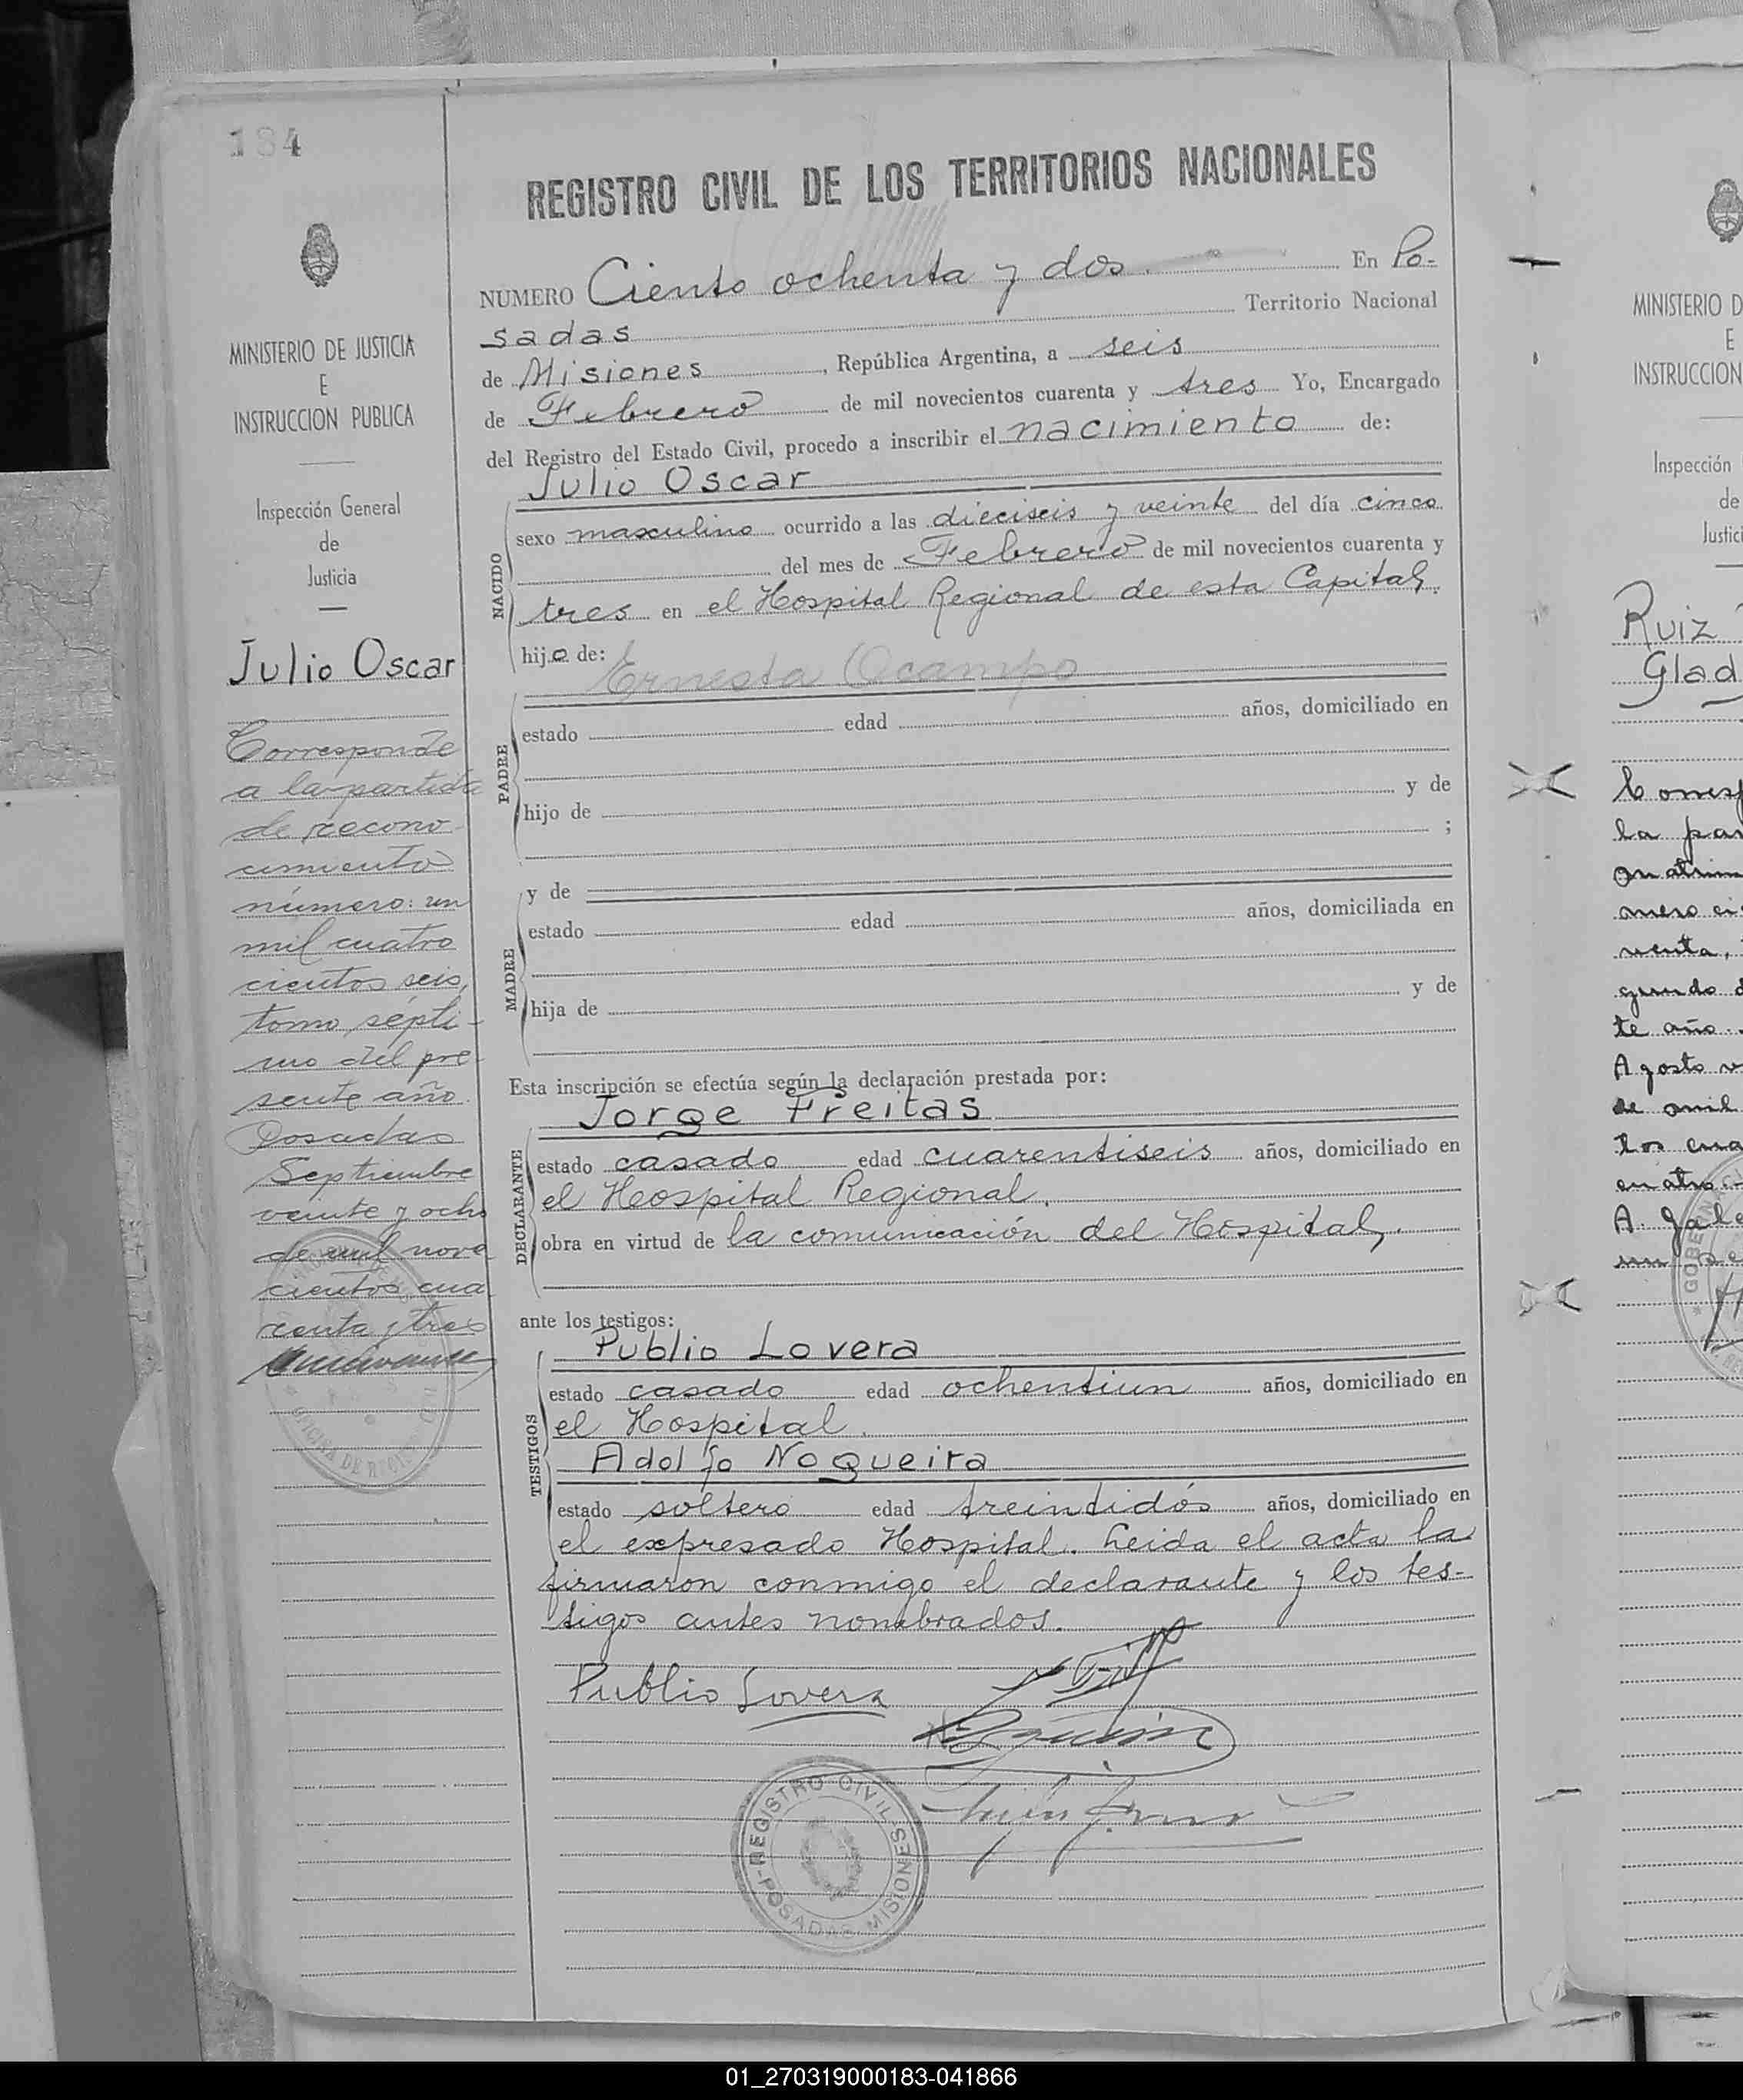 184
MINISTERIO DE JUSTICIA
E
INSTRUCCION PUBLICA
Inspección General
de
Justicia
Julio Oscar
Corresponde
a la partida
de recono-
cimiento
número: un
mil cuatro
cientos seis,
tomo sépti-
mo del pre-
sente año.
Posadas
Septiembre
veinte y ocho
de mil nove
cientos cua
renta y tres
REGISTRO CIVIL DE LOS TERRITORIOS NACIONALES
NUMERO Ciento ochenta y dos. En Po-
sadas Territorio Nacional
de Misiones, República Argentina, a seis
de Febrero de mil novecientos cuarenta y tres Yo, Encargado
del Registro del Estado Civil, procedo a inscribir el nacimiento de:
Julio Oscar
NACIDO
sexo masculino ocurrido a las dieciseis y veinte del día cinco
del mes de Febrero de mil novecientos cuarenta y
tres en el Hospital Regional de esta Capital.
hijo de:
Ernesta Ocampo
PADRE
estado edad años, domiciliado en
hijo de y de
;
MADRE
y de
estado edad años, domiciliada en
hija de y de
Esta inscripción se efectúa según la declaración prestada por:
Jorge Freitas
DECLARANTE
estado casado edad cuarentiseis años, domiciliado en
el Hospital Regional.
obra en virtud de la comunicación del Hospital.
ante los testigos:
Publio Lovera
TESTIGOS
estado casado edad ochentiun años, domiciliado en
el Hospital.
Adolfo Nogueira
estado soltero edad treintidós años, domiciliado en
el expresado Hospital. Leida el acta la
firmaron conmigo el declarante y los tes-
tigos antes nombrados.
Publio Lovera
REGISTRO CIVIL
POSADAS MISIONES
MINISTERIO D
E
INSTRUCCION
Inspección
de
Justici
Ruiz
Glad
la par
te año.
Agosto
de mil
los cua
GOBE
01_270319000183-041866